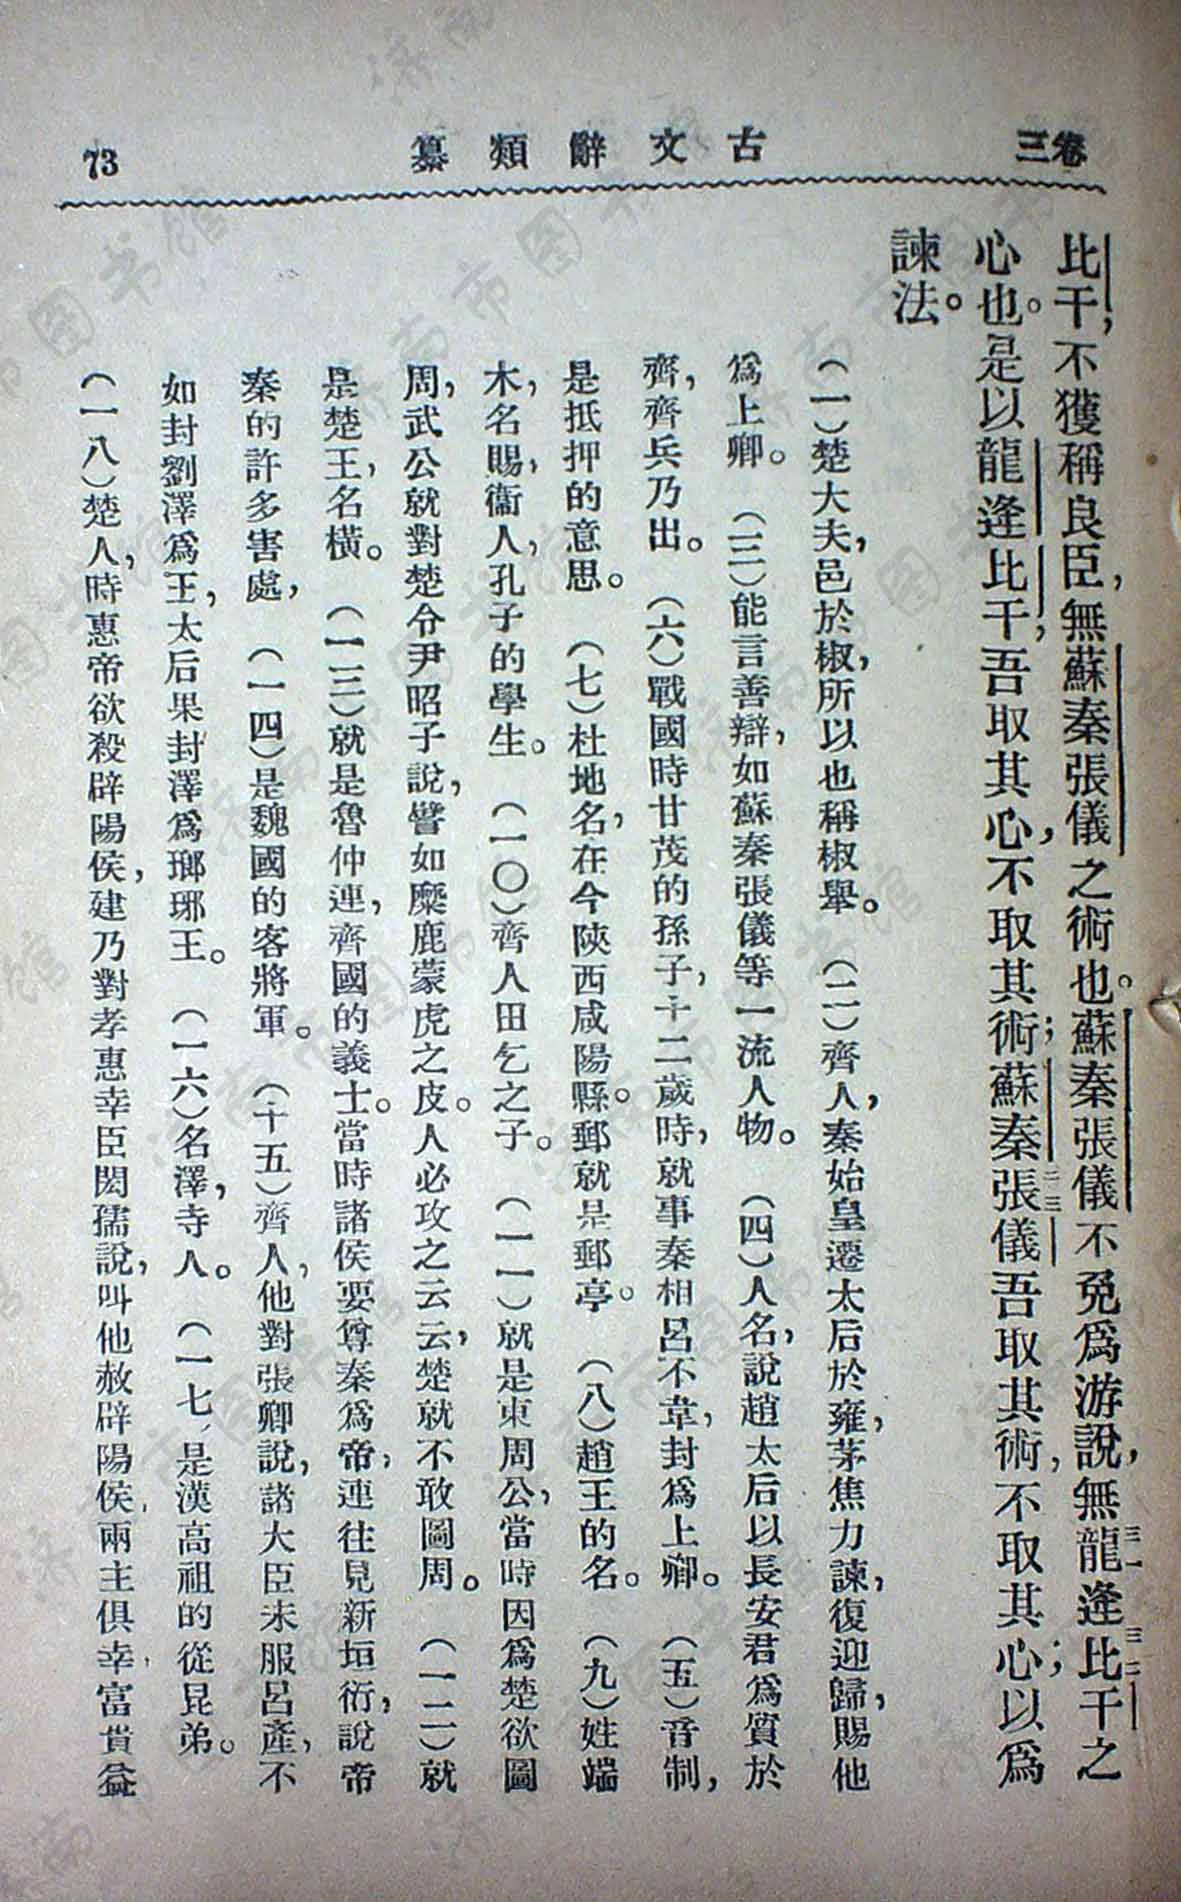 卷三
古文辭類纂
73
比干，不獲稱良臣，無蘇秦張儀之術也。蘇秦張儀不免爲游說，無龍逄比干之
三一
三二
心也。是以龍逄比干，吾取其心，不取其術；蘇秦張儀吾取其術，不取其心；以爲
三三
諫法。
（一）楚大夫，邑於椒，所以也稱椒舉。（二）齊人，秦始皇遷太后於雍，茅焦力諫，復迎歸，賜他
爲上卿。（三）能言善辯，如蘇秦張儀等一流人物。（四）人名，說趙太后以長安君爲質於
齊，齊兵乃出。（六）戰國時甘茂的孫子，十二歲時，就事秦相呂不韋，封爲上卿。（五）音制，
是抵押的意思。（七）杜地名，在今陝西咸陽縣。郵就是郵亭。（八）趙王的名。（九）姓端
木，名賜，衞人，孔子的學生。（一〇）齊人田乞之子。（一一）就是東周公，當時因爲楚欲圖
周，周武公就對楚令尹昭子說，譬如麋鹿蒙虎之皮。人必攻之云云，楚就不敢圖周。（一二）就
是楚王，名橫。（一三）就是魯仲連，齊國的義士。當時諸侯要尊秦爲帝，連往見新垣衍，說帝
秦的許多害處，（一四）是魏國的客將軍。（十五）齊人，他對張卿說，諸大臣未服呂產，不
如封劉澤爲王，太后果封澤爲瑯琊王。（一六）名澤，寺人。（一七，是漢高祖的從昆弟。
（一八）楚人，時惠帝欲殺辟陽侯，建乃對孝惠幸臣閎孺說，叫他赦辟陽侯，兩主俱幸，富貴益
济南市图书馆